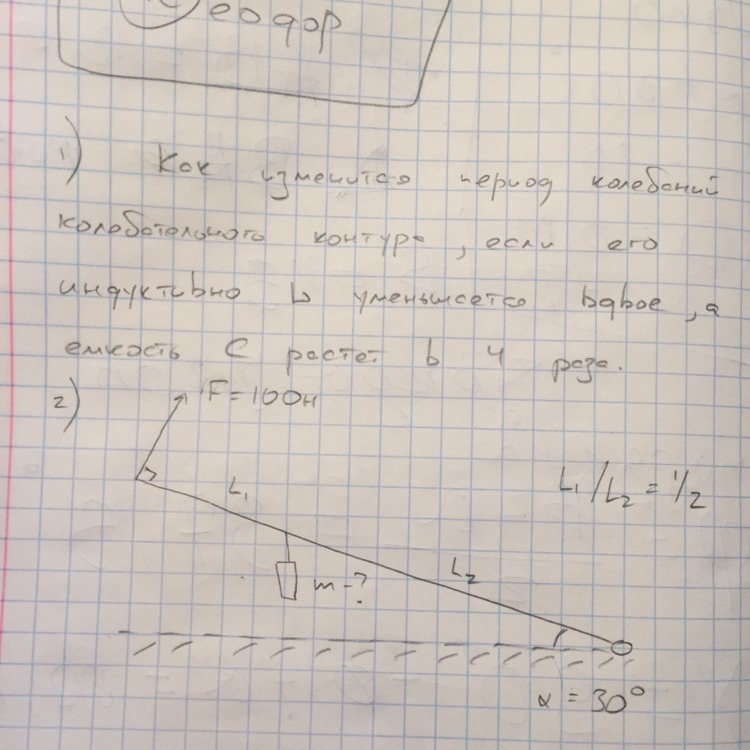 еодор
1) Как изменится период колебаний
колебательного контура, если его
индуктивно L уменьшается вдвое, а
емкость C растет в 4 раза.
2) F = 100н
L₁
L₁/L₂ = 1/2
L₂
m - ?
α = 30°